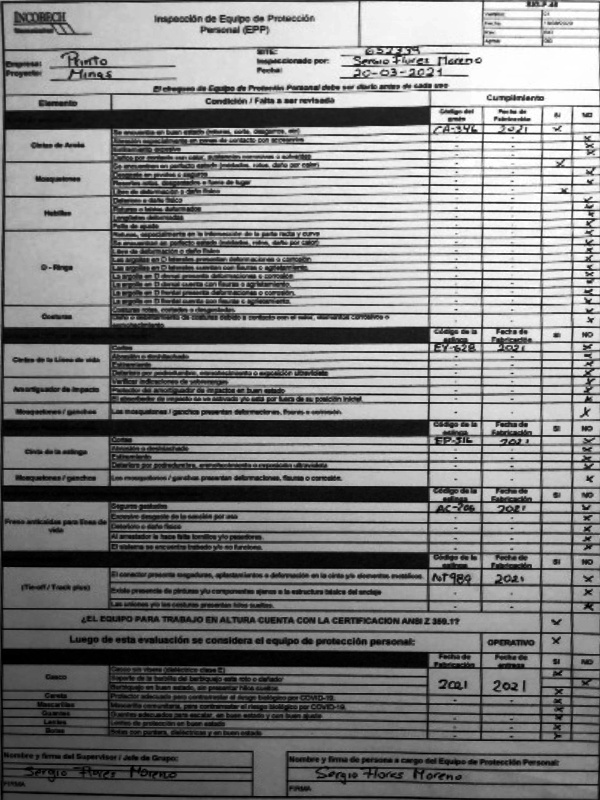 INCOBECH
Inspección de Equipo de Protección
Personal (EPP)
Empresa: Printo
Proyecto: Minas
SITE: 032339
Inspeccionado por: Sergio Flores Moreno
Fecha: 20-03-2021
El chequeo de Equipo de Protección Personal debe ser diario antes de cada uso
Elemento Condición / Falta a ser revisada Cumplimiento
Código del arnés Fecha de Fabricación SI NO
Cintas de Arnés
Se encuentra en buen estado CA-346 2021 X
Atención especialmente en zonas de contacto con accesorios
Estiramiento excesivo
Mosquetones
Se encuentran en perfecto estado (oxidados, rotos, daño por calor)
Desgaste en pivotes o seguros
Resortes rotos, desgastados o fuera de lugar
Libre de deformación o daño físico
Hebillas
Deterioro o daño físico
Longitudes deformadas
Falta de ajuste
D - Rings
Roturas, especialmente en la intersección de la parte recta y curva
Se encuentran en perfecto estado (oxidados, rotos, daño por calor)
Libre de deformación o daño físico
Las argollas en D laterales presentan deformaciones o corrosión.
Las argollas en D laterales cuentan con fisuras o agrietamiento.
La argolla en D dorsal presenta deformaciones o corrosión
La argolla en D dorsal cuenta con fisuras o agrietamiento.
La argolla en D frontal presenta deformaciones o corrosión.
La argolla en D frontal cuenta con fisuras o agrietamiento.
Costuras
Costuras rotas, cortadas o desgastadas.
Código de la eslinga Fecha de Fabricación SI NO
Cintas de la Línea de vida
Cortes EY-62B 2021 X
Abrasión o deshilachado
Estiramiento
Deterioro por podredumbre, enmohecimiento o exposición ultravioleta
Amortiguador de impacto
Verificar indicaciones de sobrecargas
Protector del amortiguador de impactos en buen estado
El absorbedor de impacto se ve activado y/o está por fuera de su posición inicial.
Mosquetones / ganchos Los mosquetones / ganchos presentan deformaciones, fisuras o corrosión. X
Código de la eslinga Fecha de Fabricación SI NO
Cinta de la eslinga
Cortes EP-316 2021 X
Abrasión o deshilachado
Estiramiento
Deterioro por podredumbre, enmohecimiento o exposición ultravioleta
Mosquetones / ganchos Los mosquetones / ganchos presentan deformaciones, fisuras o corrosión. X
Código de la eslinga Fecha de Fabricación SI NO
Freno anticaídas para línea de vida
Seguros gastados AC-206 2021 X
Excesivo desgaste de la sección por uso
Deterioro o daño físico
Al arrestador le hace falta tornillos y/o pasadores.
El sistema se encuentra trabado y/o no funciona.
Código de la eslinga Fecha de Fabricación SI NO
(Tie-off / Truck plus)
El conector presenta rasgaduras, aplastamientos o deformación en la cinta y/o elementos metálicos. NT984 2021 X
Existe presencia de pinturas y/o componentes ajenos a la estructura básica del anclaje
Las uniones y/o las costuras presentan hilos sueltos.
¿EL EQUIPO PARA TRABAJO EN ALTURA CUENTA CON LA CERTIFICACION ANSI Z 359.1? X
Luego de esta evaluación se considera el equipo de protección personal: OPERATIVO X
Fecha de Fabricación Fecha de entrega SI NO
Casco
Casco sin visera (dieléctrico clase E)
Soporte de la barbilla del barbiquejo esta roto o dañado
Barbiquejo en buen estado, sin presentar hilos sueltos 2021 2021
Careta Protector adecuado para contrarrestar el riesgo biológico por COVID-19.
Mascarillas Mascarilla comunitaria, para contrarrestar el riesgo biológico por COVID-19.
Guantes Guantes adecuados para escalar, en buen estado y con buen ajuste
Lentes Lentes de protección en buen estado
Botas Botas con puntera, dieléctricas y en buen estado
Nombre y firma del Supervisor / Jefe de Grupo:
Sergio Flores Moreno
FIRMA
Nombre y firma de persona a cargo del Equipo de Protección Personal:
Sergio Flores Moreno
FIRMA